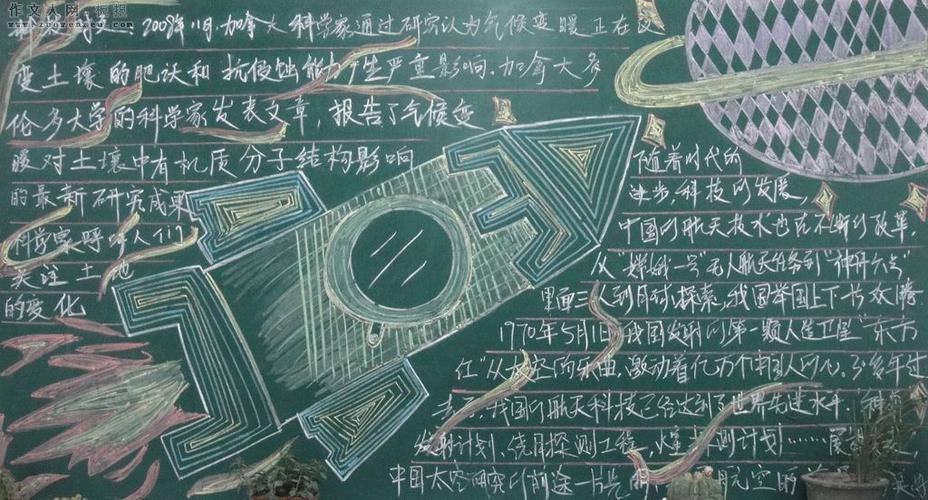 作文人网·板报
2008年11月,加拿大科学家通过研究认为气候变暖正在改
变土壤的肥沃和抗侵蚀能力产生严重影响.加拿大多
伦多大学的科学家发表文章,报告了气候变
暖对土壤中有机质分子结构影响
的最新研究成果
科学家呼吁人们
关注土地
的变化
随着时代的
进步,科技的发展,
中国的航天技术也在不断的改革,
从"嫦娥一号"无人航天任务到"神舟六号"
里面三人到月球探索,我国举国上下一片欢腾
1970年5月1日我国发射的第一颗人造卫星"东方
红"从太空的乐曲,激动着亿万个中国人的心.30多年过
去了,我国的航天科技已经达到了世界先进水平.
发射计划、绕月探测工程、火星探测计划……
中国太空研究的前途一片光明,